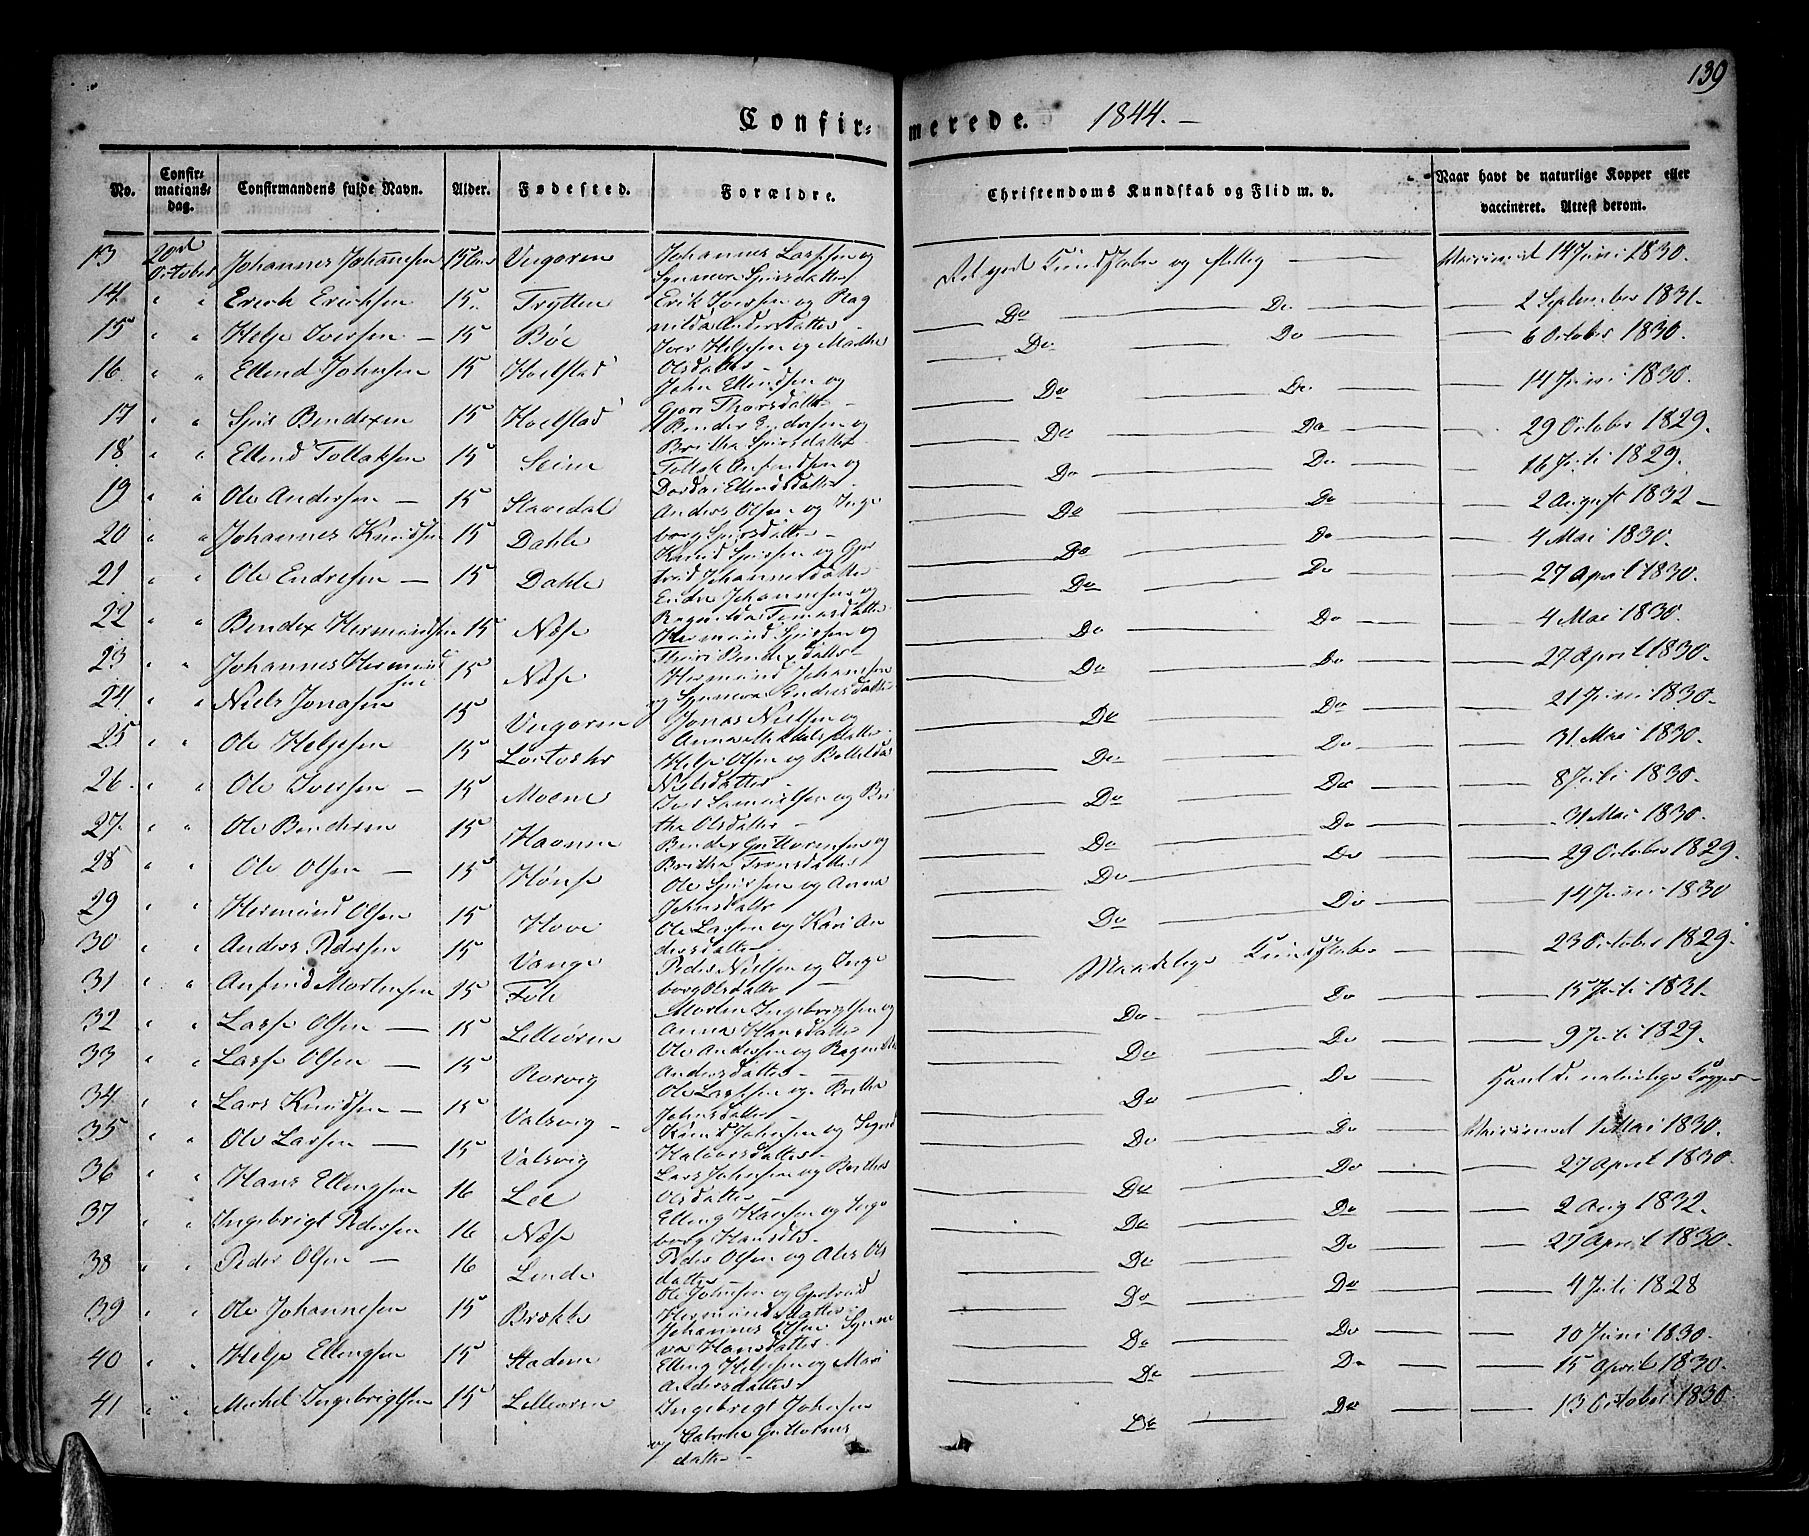 139
Confir= merede. 1844. –
No.
Confir-
mations-
dag.
Confirmandens fulde Navn.
Alder.
Fødested.
Forældre.
Christendoms Kundskab og Flid m. v.
Naar havt de naturlige Kopper eller
vaccineret. Attest derom.
13 20de October Johannes Johannesen 15 Aar Ungoren Johannes Larssen og Synneva Sjursdatter Vaccineret 14 Juni 1830.
14. " " Erich Ericksen 15. Trytten Erik Iversen og Ragnilda Andersdatter – Do Do 2 September 1831.
15 " " Helje Iversen – 15 Bøe Iver Heljesen og Marthe Olsdatter – Do Do 6 October 1830.
16. " " Ellend Johnsen 15 Hoelstad John Ellendsen og Gjori Thorsdatter – Do Do 14 Juni 1830.
17 " " Sjur Bendixen 15 Hoelstad Bendix Endresen og Britha Sjursdatter Do Do 29 October 1829.
18. " " Ellend Tollaksen 15 Seim Tollak Anfindsen og Dordei Ellendsdatter Do Do 16 Juli 1829.
19 " " Ole Andersen – 15 Stavedal Anders Olsen og Ingeborg Sjursdatter – Do Do 2 August 1832 –
20 " " Johannes Knudsen 15 Dahle Knud Sjursen og Johannesdatter Do Do 4 Mai 1830.
21 " " Ole Endresen – 15 Dahle Endre Johannesen og Ragnilda Tomasdatter Do Do 27 April 1830.
22 " " Bendix Hermundsen 15 Næse Hermund Sjursen og Thuri Bendixdatter Do Do 4 Mai 1830.
23 " " Johannes Hermundsen 15 Næse Hermund Johannesen og Synneva Endresdatter Do Do 27 April 1830.
24. " " Niels Jonasen 15 Ungoren Jonas Nielsen og Anna Mikkelsdatter Do Do 21 Juni 1830.
25 " " Ole Heljesen 15 Helje Olsen og Nielsdatter Do Do 31 Mai 1830.
26 " " Ole Iversen – 15 Moene Iver Samuelsen og Britha Olsdatter Do Do 8 Juli 1830.
27. " " Ole Bendixen 15 Havnen Bendix Guttormsen og Britha Do Do 31 Mai 1830.
28 " " Ole Olsen – 15 Hønse Ole Sjursen og Anna Johnsdatter Do Do 29 October 1829.
29 " " Hermund Olsen 15 Hove Ole Larssen og Kari Andersdatter – Do Do 14 Juni 1830
30 " " Anders Pedersen 15 Vange Peder Nielsen og Ingeborg Olsdatter – Maadelige Kundskaber 23 October 1829.
31 " " Anfind Mortensen 15 Morten Ingebrigtsen og Anna Hansdatter Do Do 15 Juli 1831.
32 " " Lasse Olsen – 15 Lilleøren Ole Andersen og Andersdatter – Do Do 9 Juli 1829.
33 " " Lasse Olsen 15 Rorvig Ole Larssen og Britha Johnsdatter – Do Do Havt de naturlige Kopper –
34 " " Lars Knudsen – 15 Valsvig – Knud Johnsen og Halvorsdatter – Do Do Vaccineret 1 Mai 1830.
35 " " Ole Larsen – 15 Valsvig Lars Johnsen og Olsdatter – Do Do 27 April 1830.
36 " " Hans Ellingsen 16 Lee Elling Hansen og Ingeborg Hansdtr. Do Do 2 Aug 1832.
37 " " Ingebrigt Pedersen 16 Næse Peder Olsen og Olsdatter – Do Do 27 April 1830.
38 " " Peder Olsen – 16 Linde Ole Johnsen og Hermundsdatter. Do Do 4 Juli 1828
39 " " Ole Johannesen 15 Brække Johannes Olsen Synneva Hansdatter. Do Do 10 Juni 1830.
40 " " Helje Ellingsen 15 Stadem Elling Heljesen og Mari Andersdatter Do Do 15 April 1830.
41 " " Mechel Ingebrigtsen 15 Lilleøren Ingebrigt Johnsen og Guttorms datter – Do Do 13 October 1830